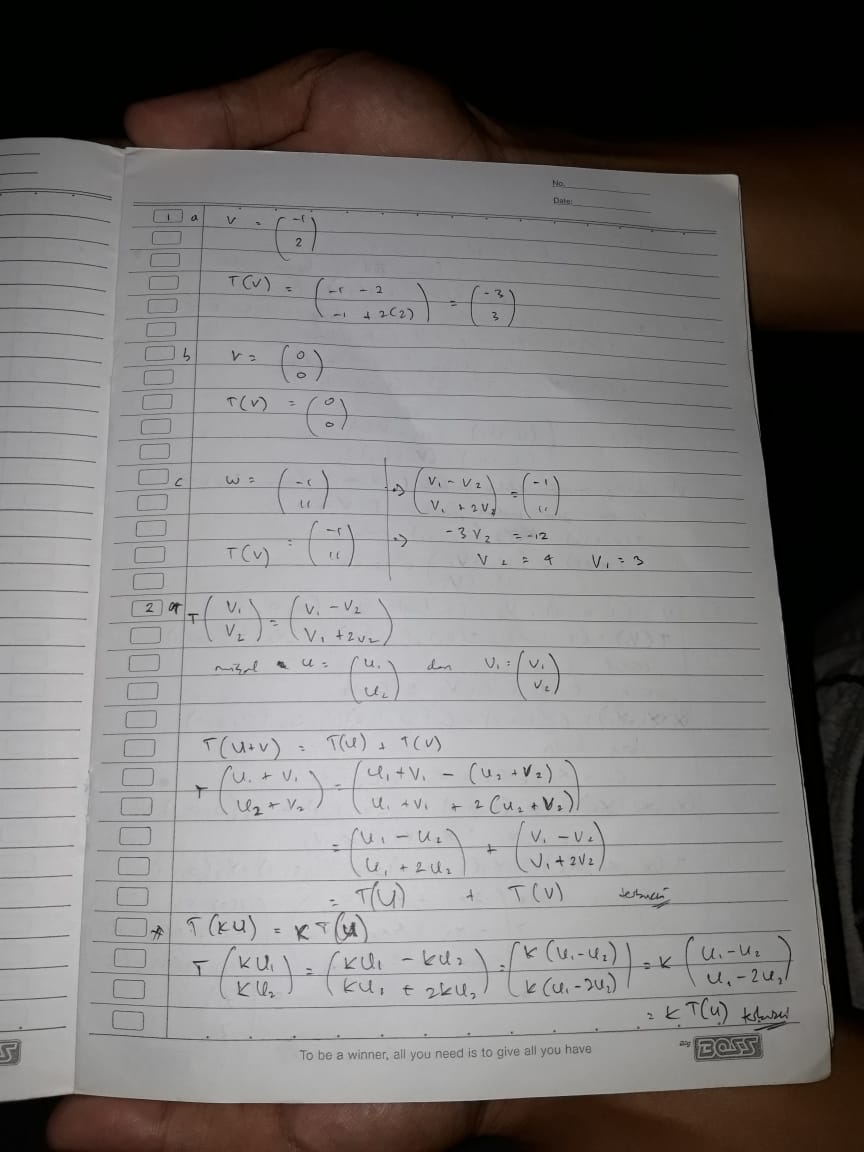 No.
Date:
1 a V = (-1 2)
T(V) = (-1 - 2 -1 + 2(2)) = (-3 3)
b V = (0 0)
T(V) = (0 0)
c W = (-1 11) => (V₁ - V₂ V₁ + 2V₂) = (-1 11)
T(V) = (-1 11) => -3V₂ = -12
V₂ = 4 V₁ = 3
2 T(V₁ V₂) = (V₁ - V₂ V₁ + 2V₂)
misal u = (u₁ u₂) dan V₁ = (V₁ V₂)
T(u+v) = T(u) + T(v)
T(u₁ + V₁ u₂ + V₂) = (u₁ + V₁ - (u₂ + V₂) u₁ + V₁ + 2(u₂ + V₂))
= (u₁ - u₂ u₁ + 2u₂) + (V₁ - V₂ V₁ + 2V₂)
= T(u) + T(V) terbukti
* T(ku) = kT(u)
T(ku₁ ku₂) = (ku₁ - ku₂ ku₁ + 2ku₂) = (k(u₁-u₂) k(u₁-2u₂)) = k(u₁-u₂ u₁-2u₂)
= k T(u) terbukti
To be a winner, all you need is to give all you have
BOSS